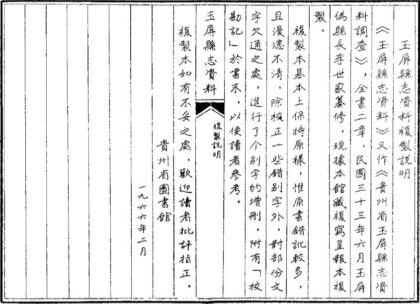 玉屏縣志資料複製說明
《玉屏縣志資料》又作《貴州省玉屏縣資
料調查》，全書二章，民國三十三年六月玉屏
偽縣長李世家纂修，現據本館藏復寫呈報本複
製。
複製本基本上保持原樣，惟原書錯訛較多，
且漫漶不清，除校正一些錯別字外，對部份文
字欠通之處，進行了个别字的增刪，附有「校
勘記」於書末，以便讀者參考。
玉屏縣志資料
複製說明
複製本如有不妥之處，歡迎讀者批評指正。
貴州省圖書館
一九六六年二月